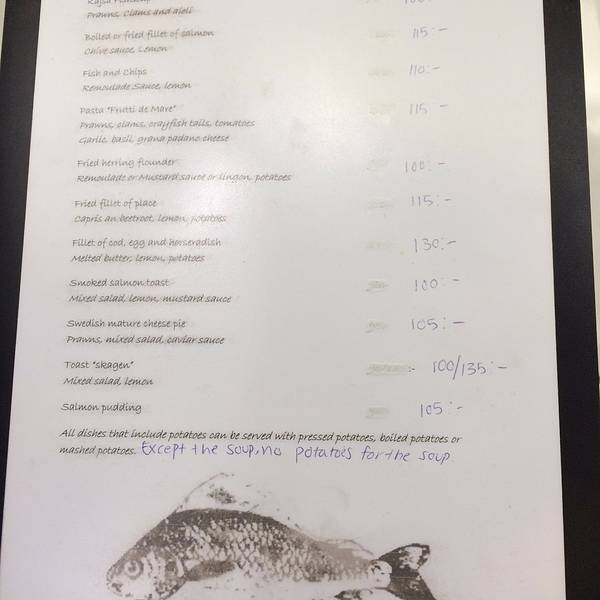 Prawns, Clams and aieli
Boiled or fried fillet of salmon 115:-
Chive sauce, Lemon
Fish and Chips 110:-
Remoulade Sauce, lemon
Pasta "Frutti de Mare" 115:-
Prawns, clams, crayfish tails, tomatoes
Garlic, basil, grana padano cheese
Fried herring flounder 100:-
Remoulade or Mustard sauce or lingon, potatoes
Fried fillet of place 115:-
Capris an beetroot, lemon, potatoes
Fillet of cod, egg and horseradish 130:-
Melted butter, lemon, potatoes
Smoked salmon toast 100:-
Mixed salad, lemon, mustard sauce
Swedish mature cheese pie 105:-
Prawns, mixed salad, caviar sauce
Toast "skagen" :- 100/135:-
Mixed salad, lemon
Salmon pudding 105:-
All dishes that include potatoes can be served with pressed potatoes, boiled potatoes or
mashed potatoes. Except the soup, no potatoes for the soup.